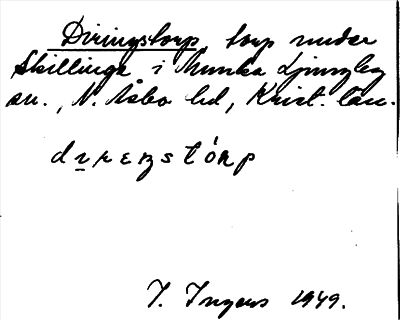 Diringstorp torp under
Skillinge i Munka Ljungby
sn., N. Åsbo hd, Krist. län.
dɪrɛŋstórp
I. Ingers 1949.